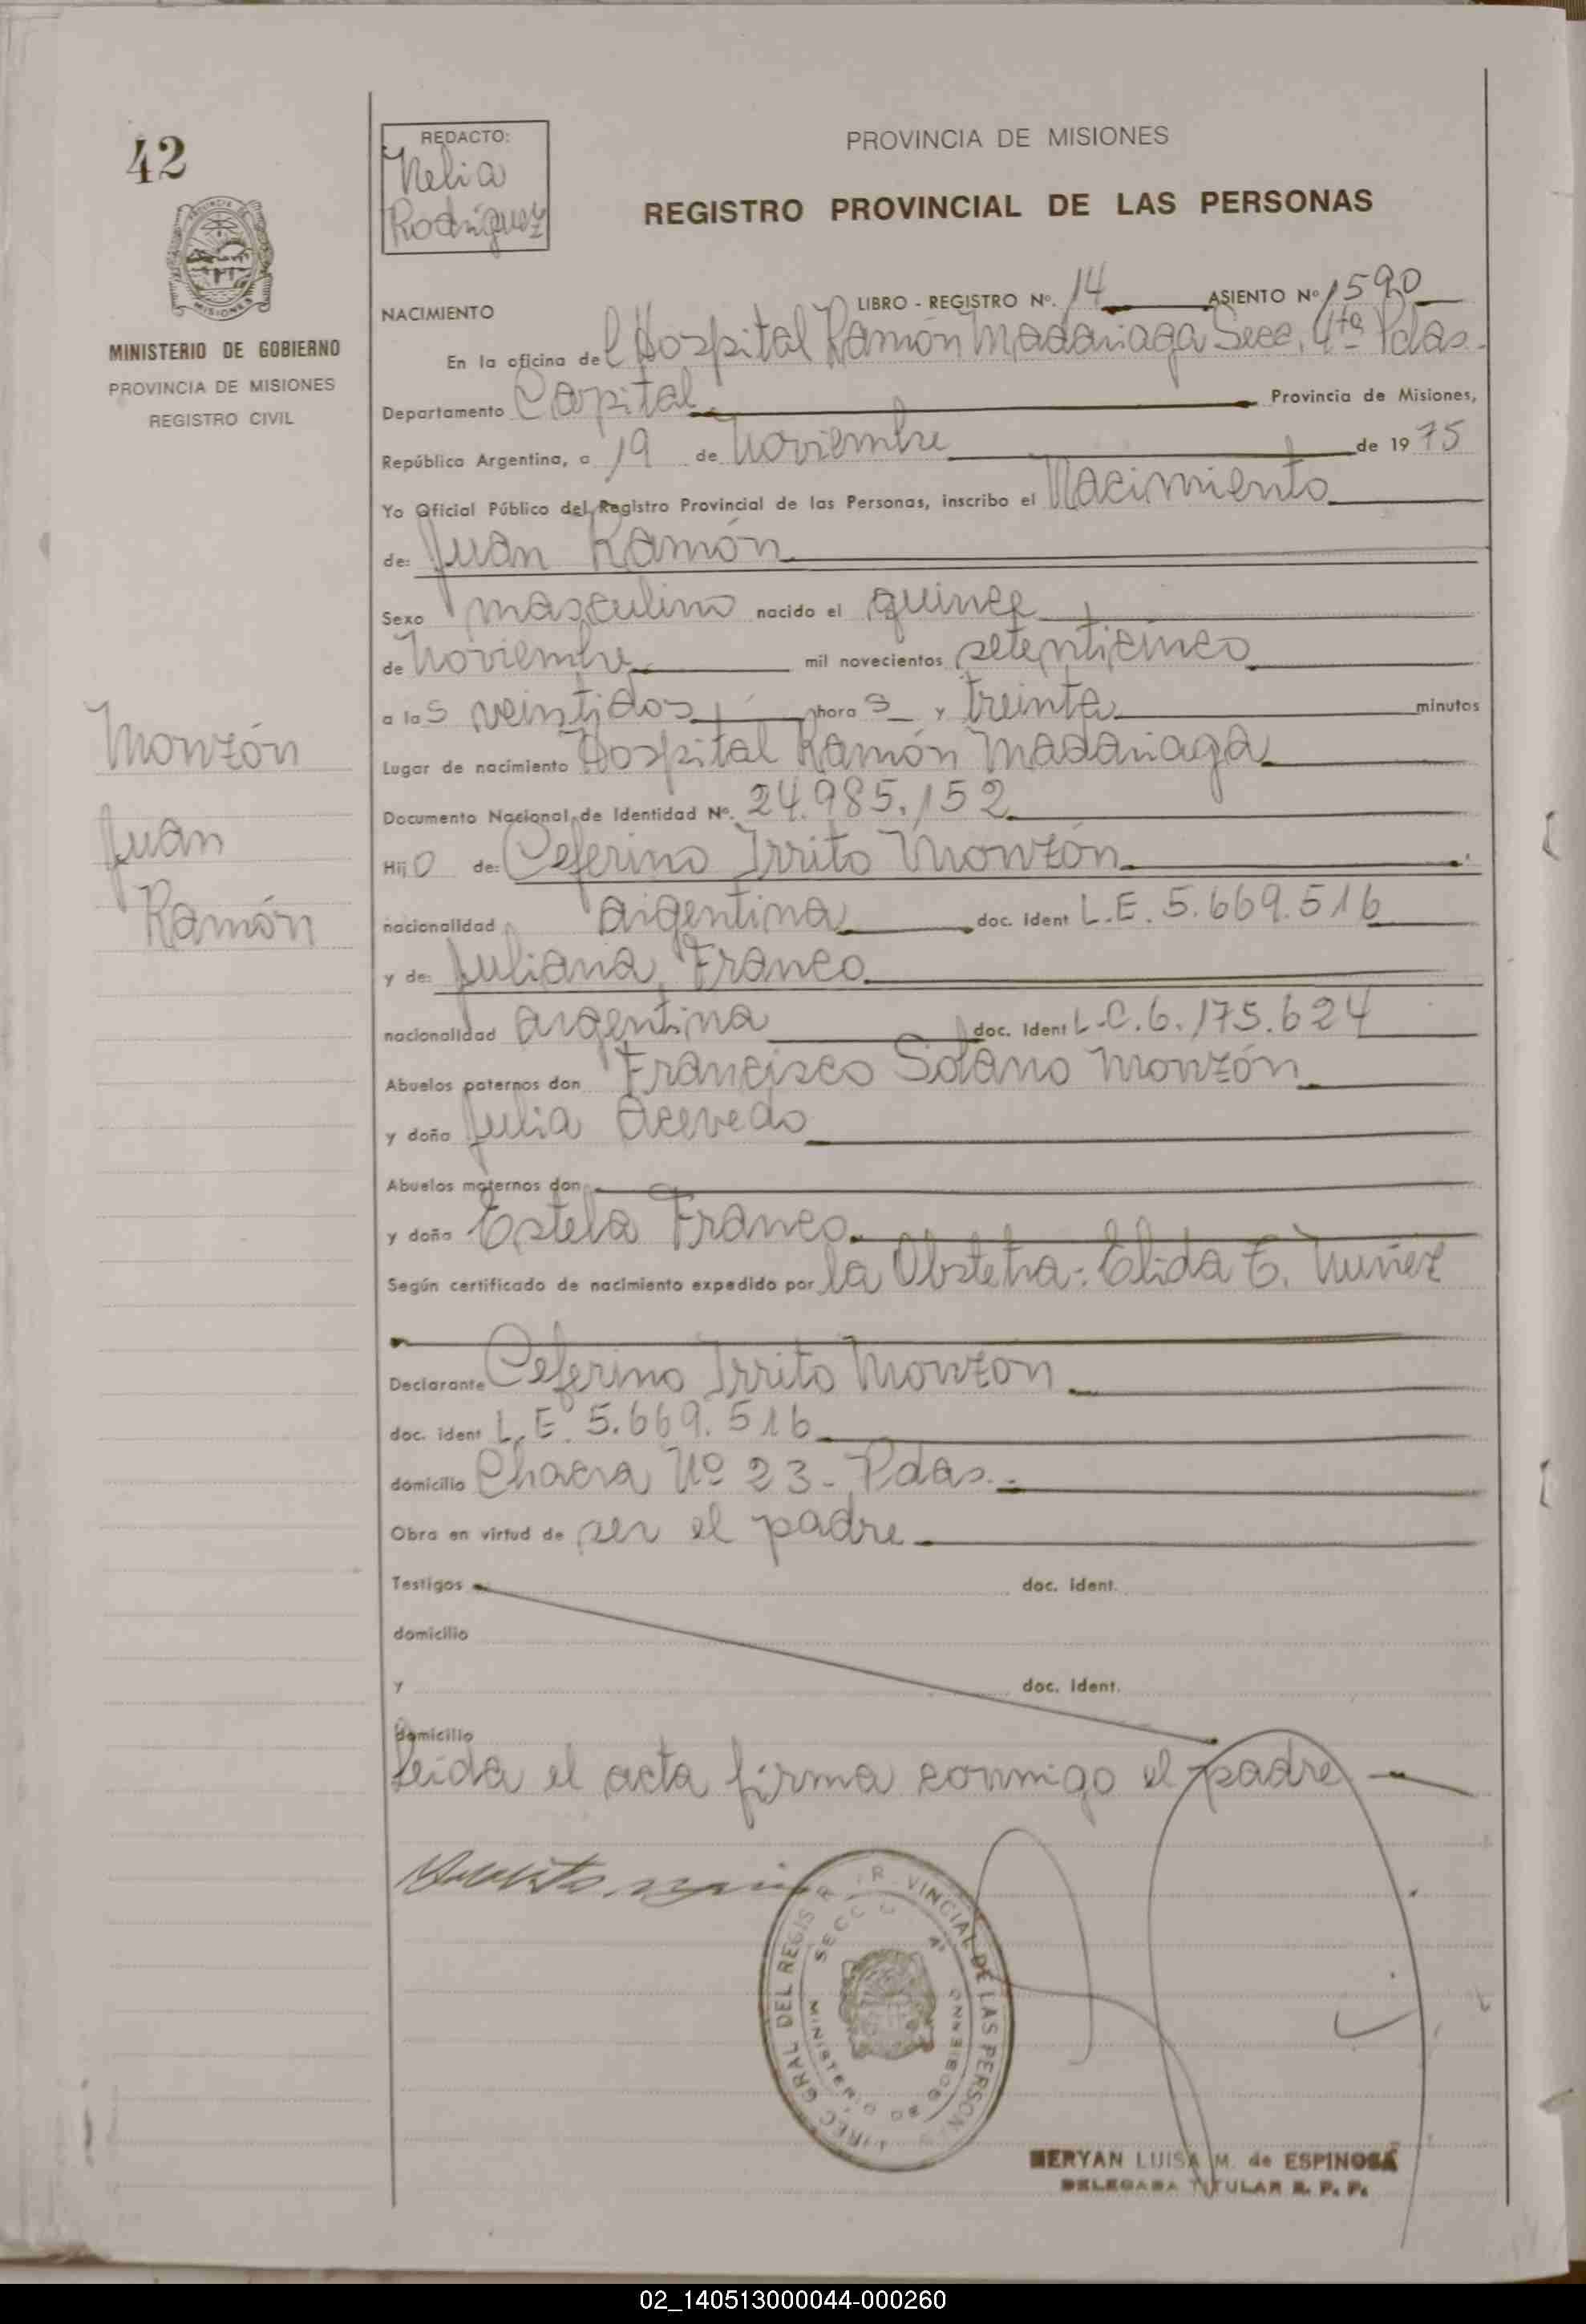 42
REDACTO:
Nelia
Rodriguez
PROVINCIA DE MISIONES
REGISTRO PROVINCIAL DE LAS PERSONAS
MINISTERIO DE GOBIERNO
PROVINCIA DE MISIONES
REGISTRO CIVIL
NACIMIENTO
LIBRO - REGISTRO Nº. 14 ASIENTO Nº 1590
En la oficina del Hospital Ramón Madariaga Secc. 4ta Pdas.
Departamento Capital Provincia de Misiones,
República Argentina, a 19 de Noviembre de 1975
Yo Oficial Público del Registro Provincial de las Personas, inscribo el Nacimiento
de: Juan Ramón
Sexo masculino nacido el quince
de Noviembre mil novecientos setenticinco
a las veintidos horas y treinta minutos
Lugar de nacimiento Hospital Ramón Madariaga
Documento Nacional de Identidad Nº. 24.985.152
Hijo de: Ceferino Irrito Monzón
nacionalidad argentina doc. ident L.E. 5.669.516
y de: Juliana Franco
nacionalidad argentina doc. ident L.C. 6.175.624
Abuelos paternos don Francisco Solano Monzón
y doña Julia Acevedo
Abuelos maternos don
y doña Estela Franco
Según certificado de nacimiento expedido por la Obstetra: Elida E. Nuñez
Declarante Ceferino Irrito Monzón
doc. ident L.E. 5.669.516
domicilio Chacra Nº 23 - Pdas.
Obra en virtud de ser el padre
Testigos doc. ident.
domicilio
y doc. ident.
domicilio
Leida el acta firma conmigo el padre
Monzón
Juan
Ramón
MINISTERIO DE GOBIERNO
MERYAN LUISA M. de ESPINOSA
DELEGADA TITULAR R. P. P.
02_140513000044-000260